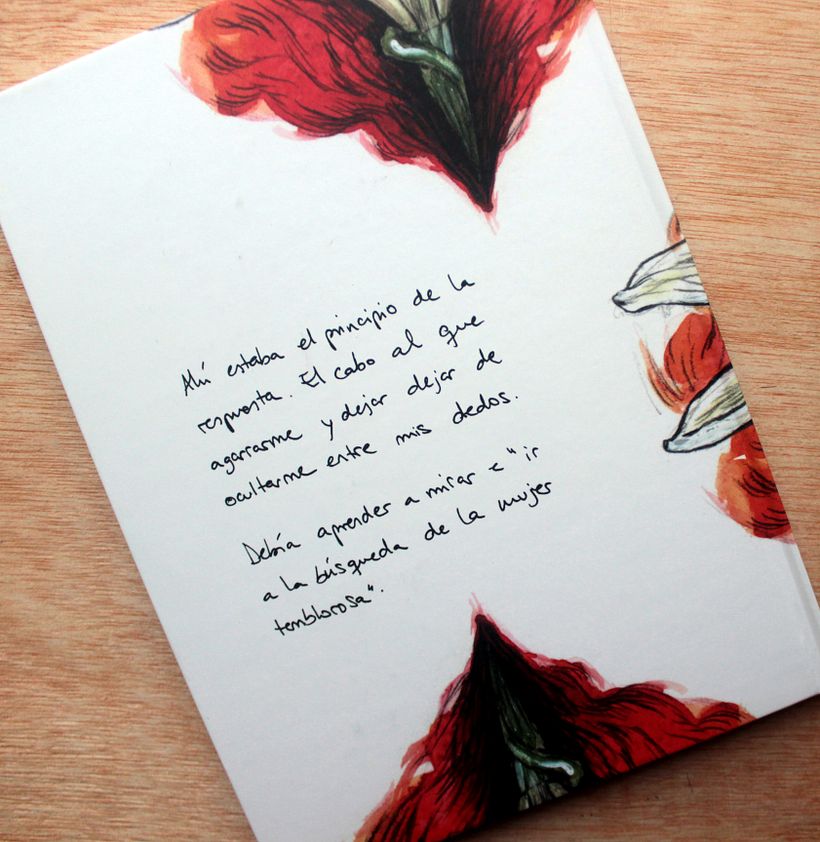 Ahí estaba el principio de la
respuesta. El cabo al que
agarrarme y dejar dejar de
ocultarme entre mis dedos.
Debía aprender a mirar e "ir
a la búsqueda de la mujer
temblorosa".